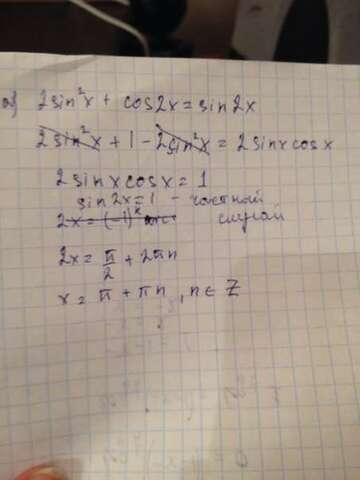 2sin²x + cos2x = sin2x
2sin²x + 1 - 2sin²x = 2sinxcosx
2sinxcosx = 1
sin2x = 1 - частный
случай
2x = (-1)ᵏ
2x = π/2 + 2πn
x = π + πn, n ∈ Z